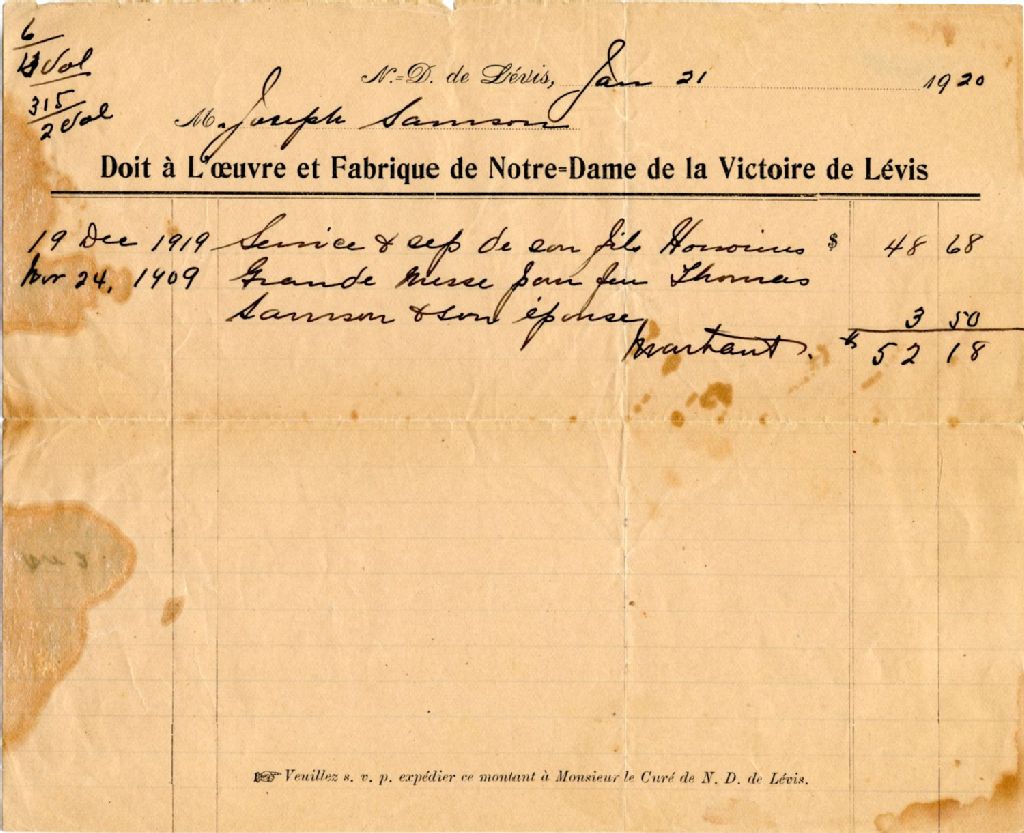 6
11 Vol
315
2 Vol
N.=D. de Lévis, Jan 21 1920
M. Joseph Samson
Doit à L'œuvre et Fabrique de Notre=Dame de la Victoire de Lévis
19 Dec 1919 Service & sep de son fils Honorius $ 48 68
Nov 24, 1909 Grande Messe pour feu Thomas
Samson & son épouse 3 50
Montant. $ 52 18
☞ Veuillez s. v. p. expédier ce montant à Monsieur le Curé de N. D. de Lévis.